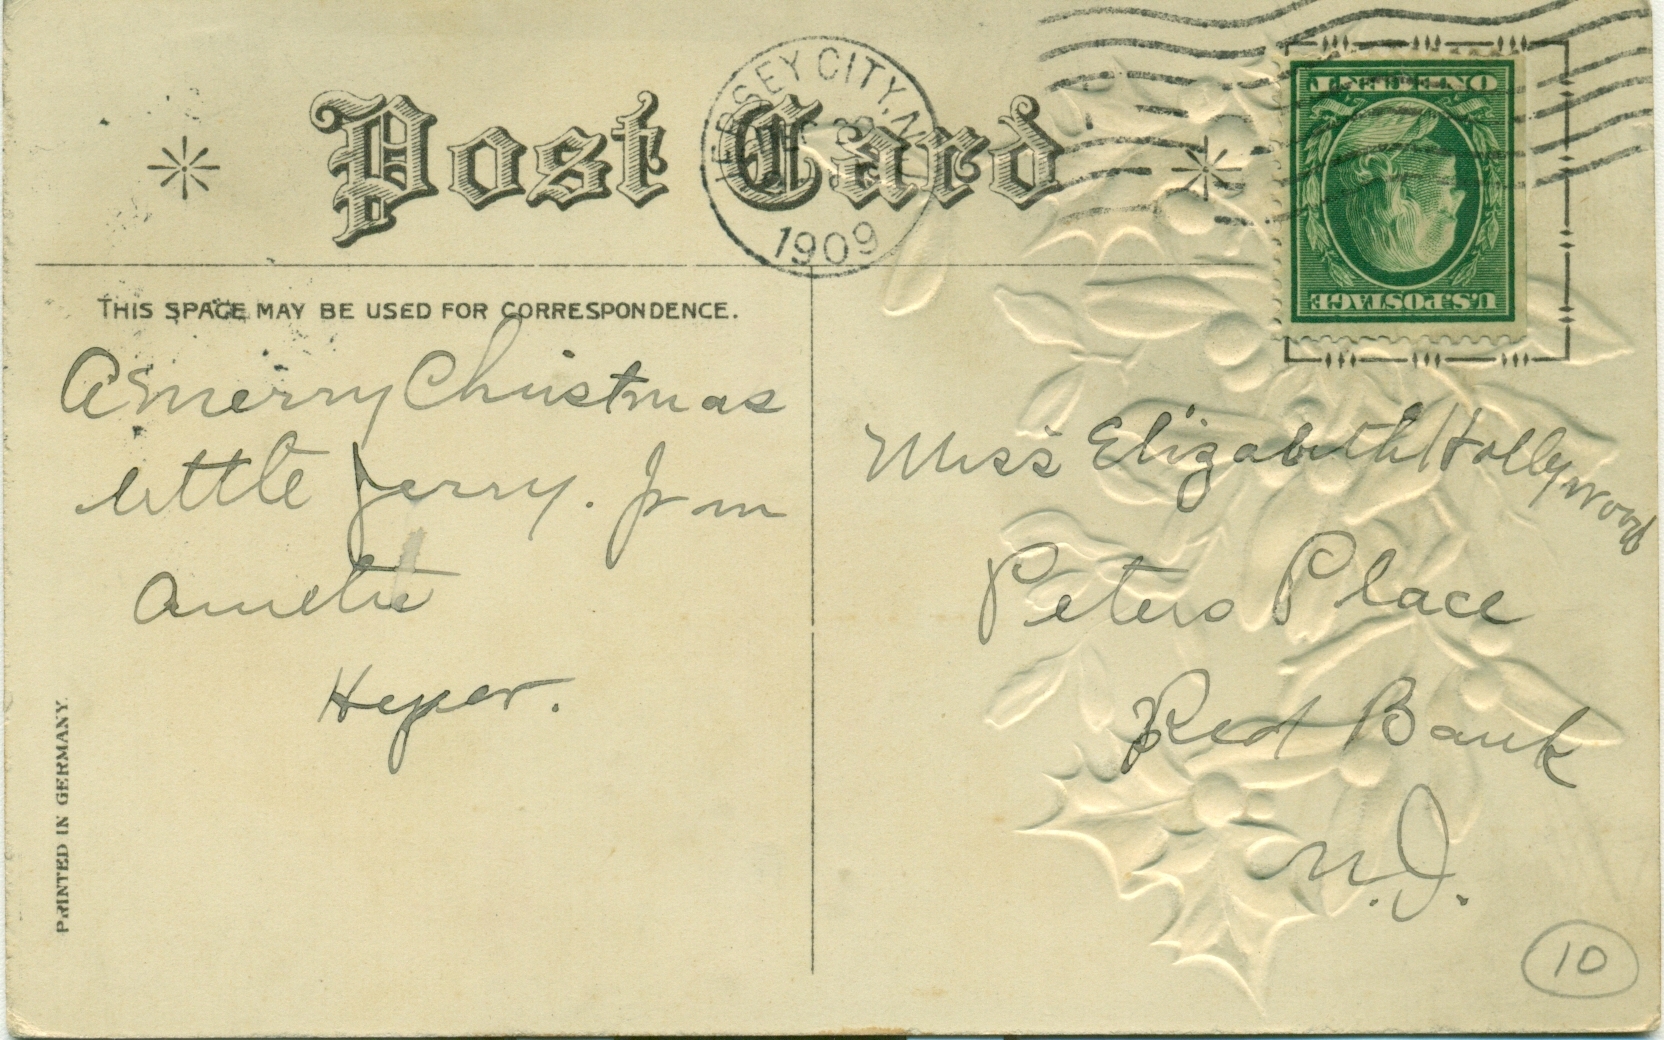 Post Card
JERSEY CITY, N.J.
1909
ONE CENT
U.S. POSTAGE
THIS SPACE MAY BE USED FOR CORRESPONDENCE.
A Merry Christmas
little Jerry. from
Heyer.
Miss Elizabeth Hollywood
Peters Place
Red Bank
N.J.
PRINTED IN GERMANY.
10